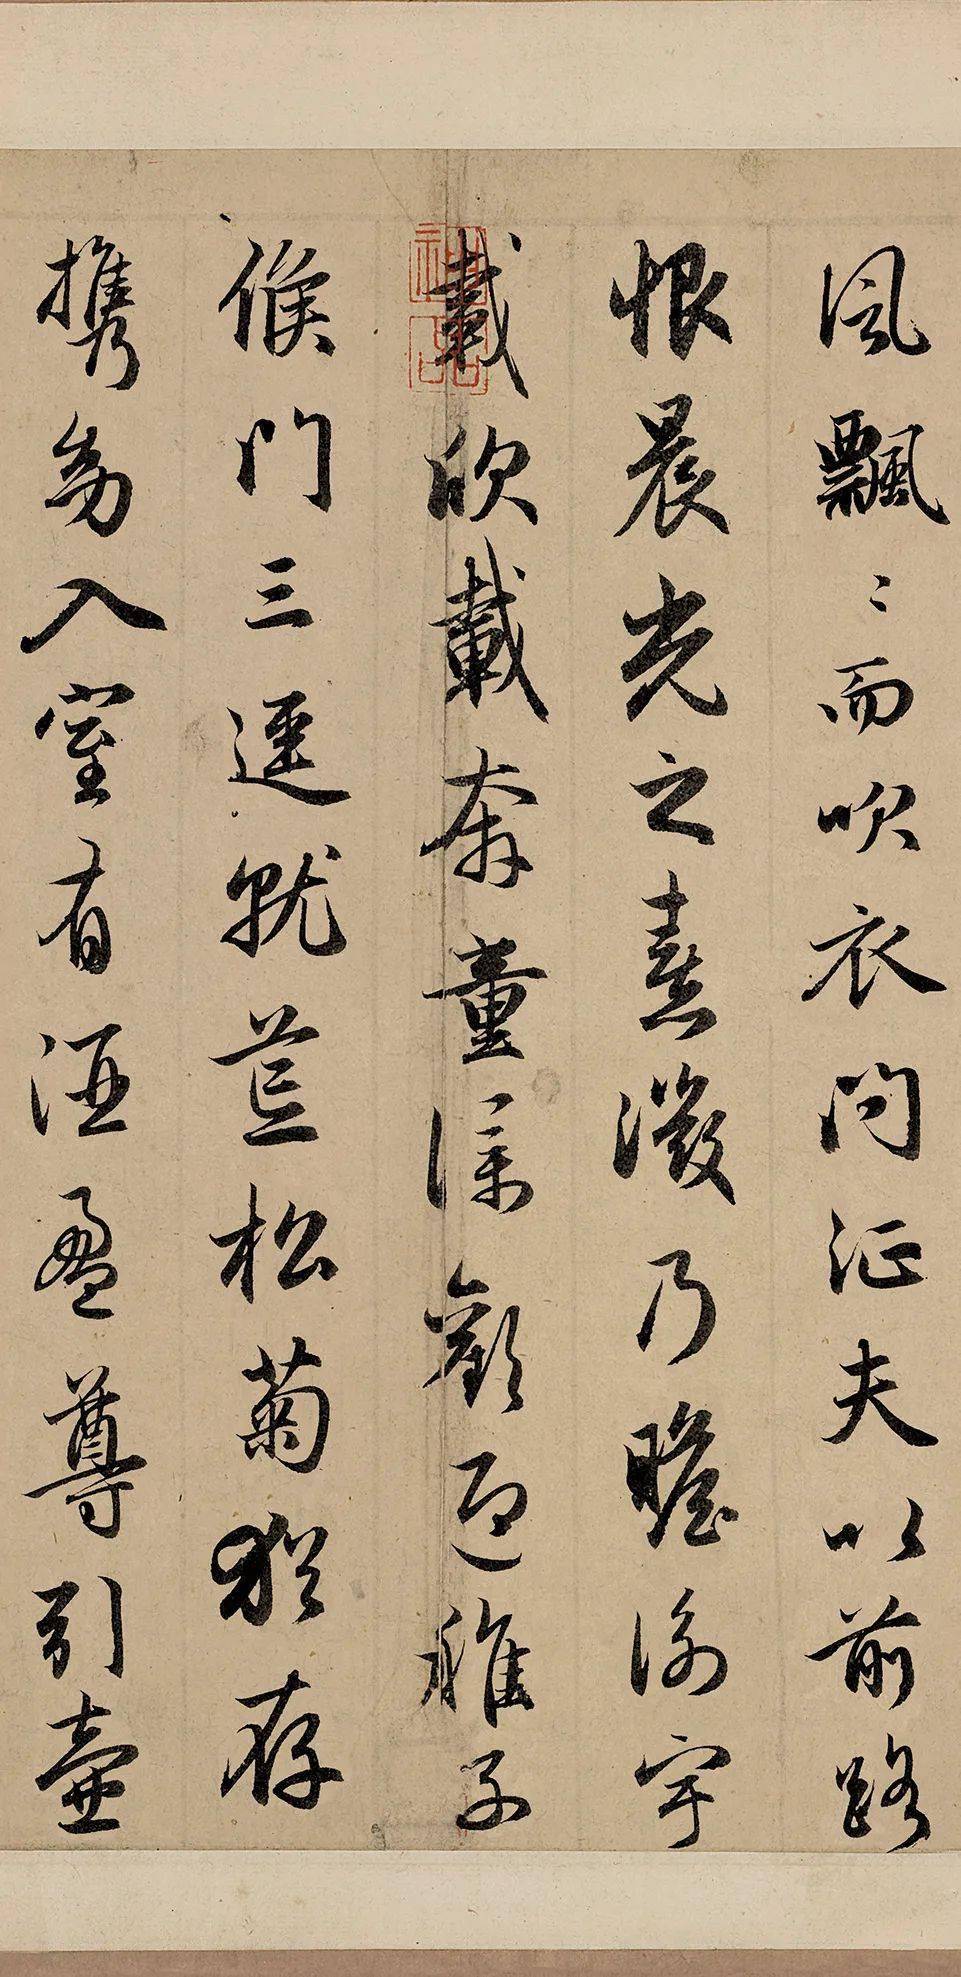 風飄〻而吹衣问征夫以前路
恨晨光之熹微乃瞻衡宇
載欣載奔童僕歡迎稚子
候门三逕就荒松菊猶存
携幼入室有酒盈尊引壺